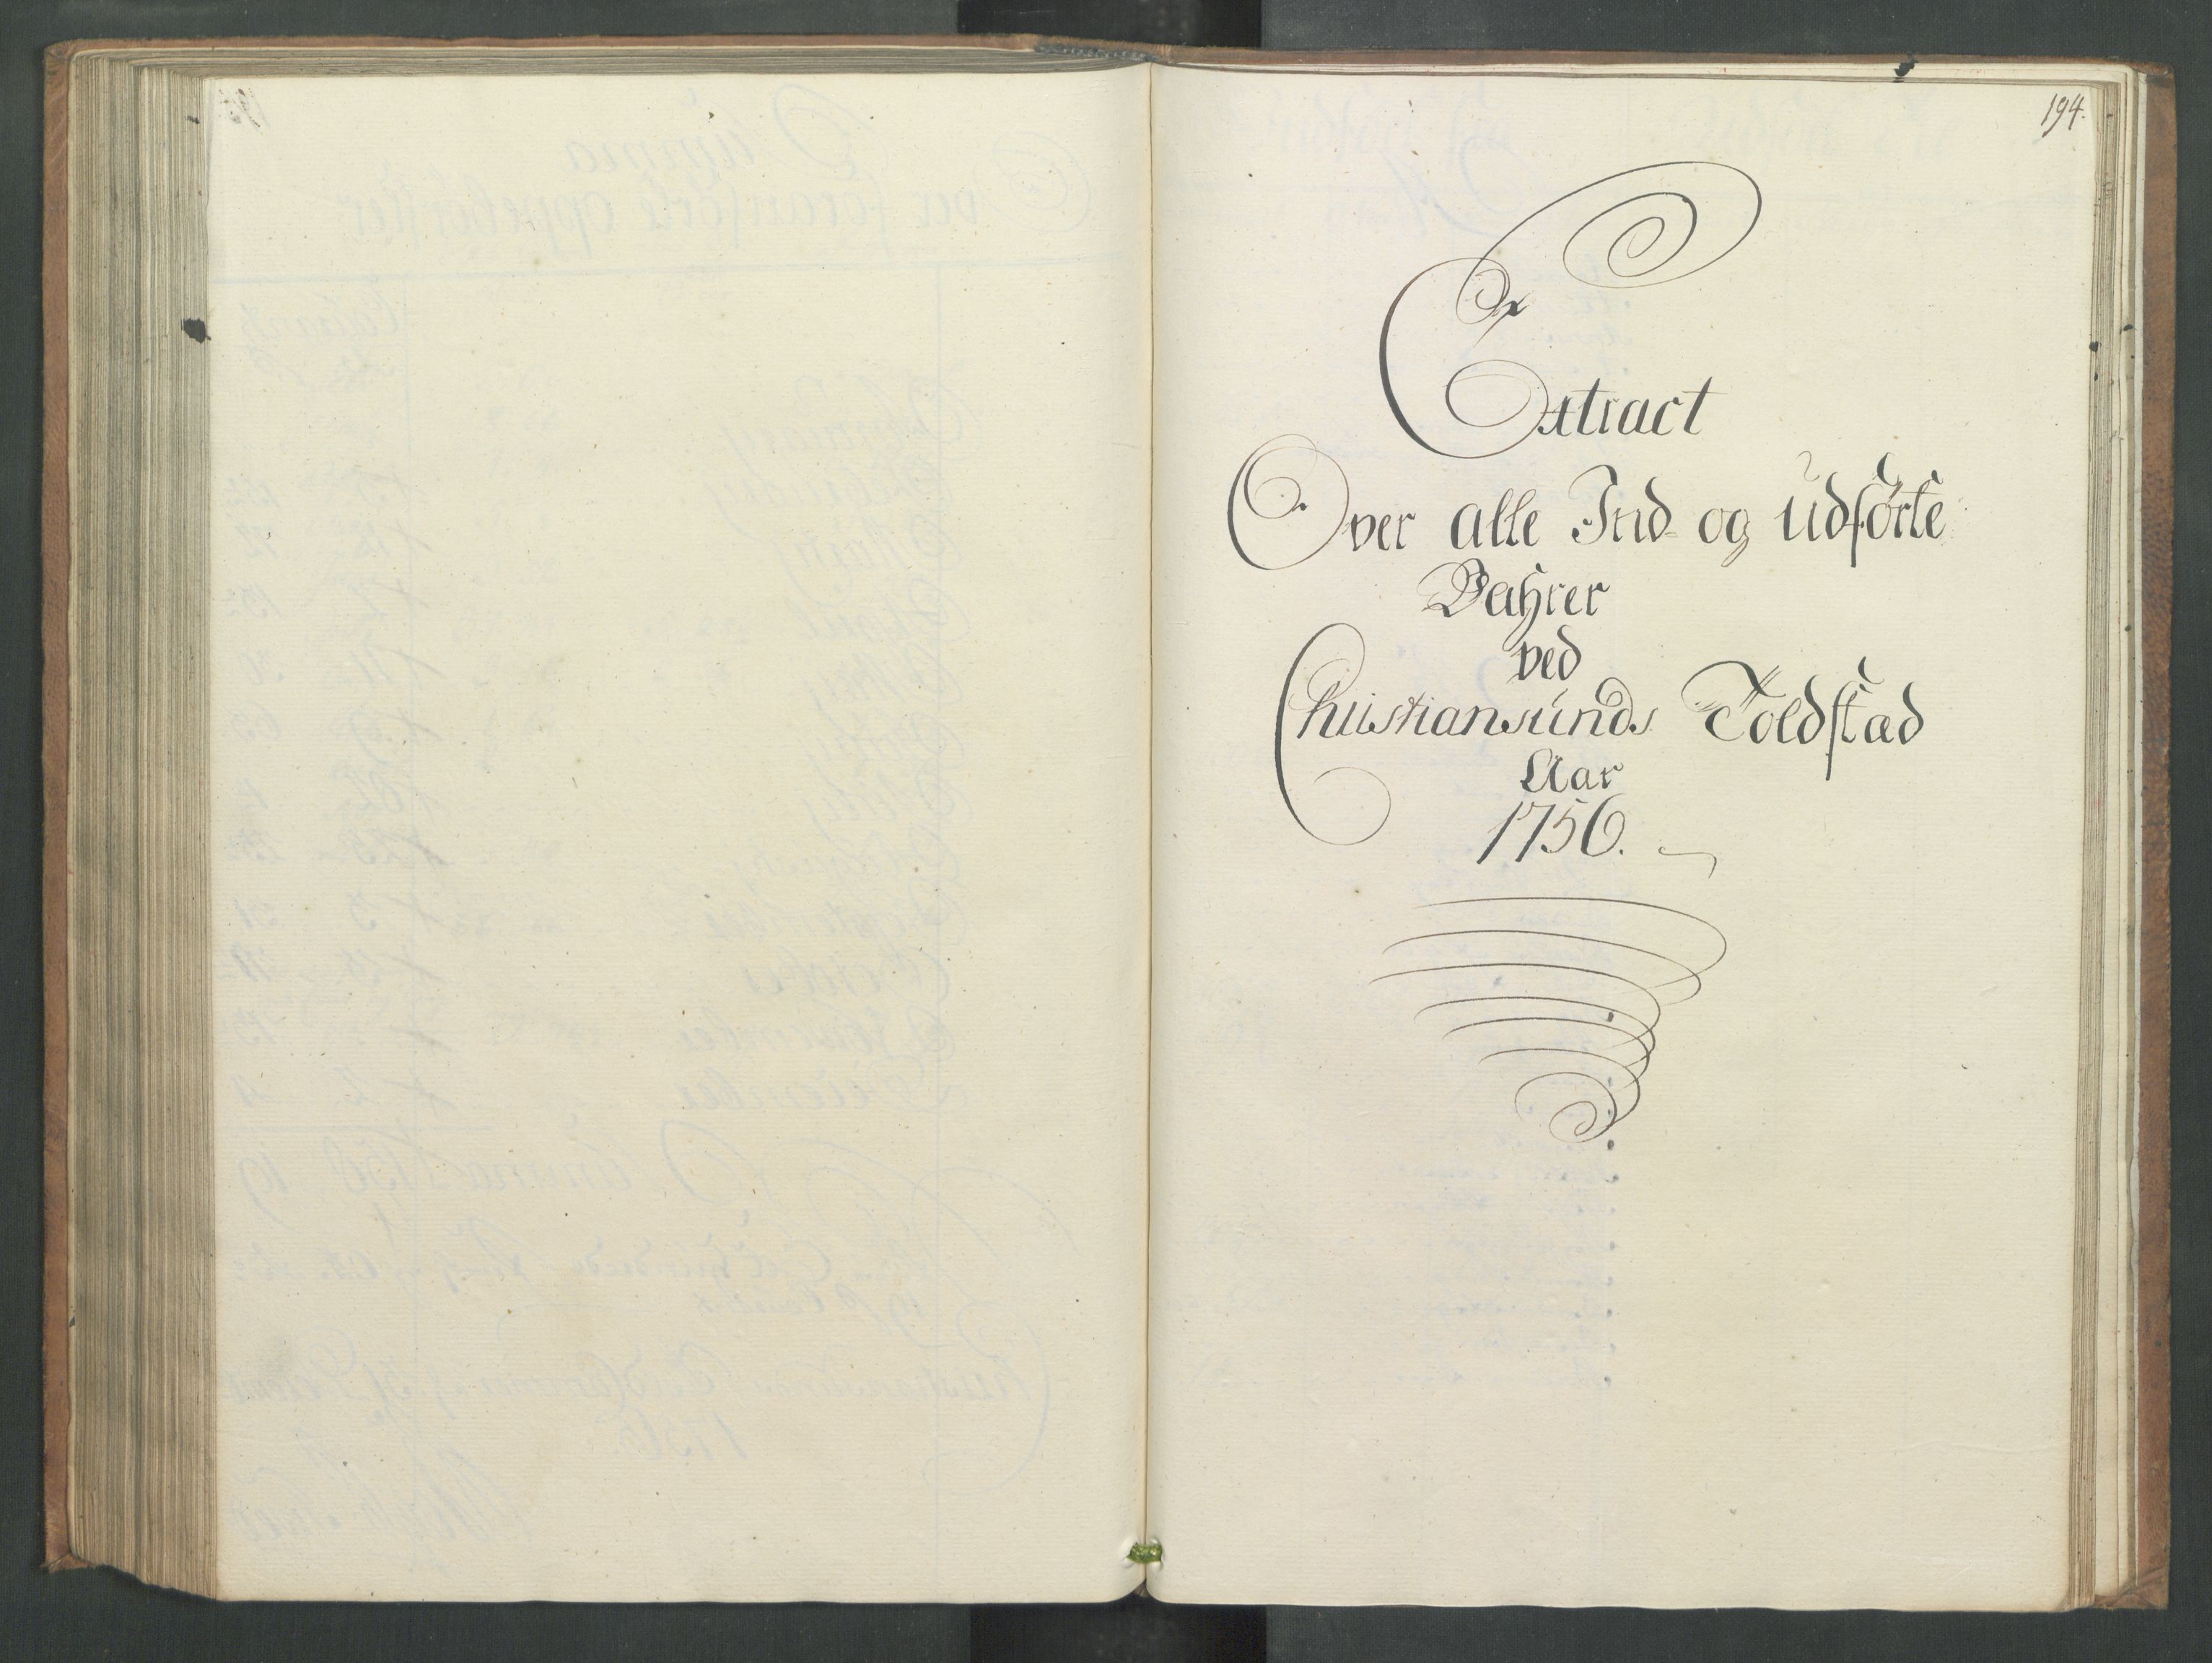 194.
Extract
Over alle Ind- og udførte
Vahrer
ved
Christiansunds Toldstæd
Aar
1756.